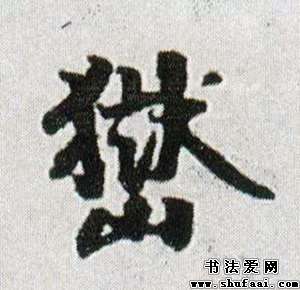 嶽
书法爱网
www.shufaai.com